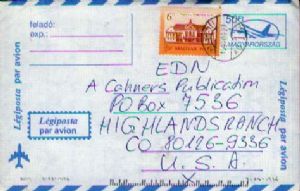 feladó:
exp.:
6 Ft
MAGYAR POSTA
MAGYARORSZÁG
Légiposta
par avion
EDN
A Cahners Publication
PO Box 7536
HIGHLANDS RANCH
CO 80126-9336
U. S. A.
Légiposta
par avion
Légiposta
par avion